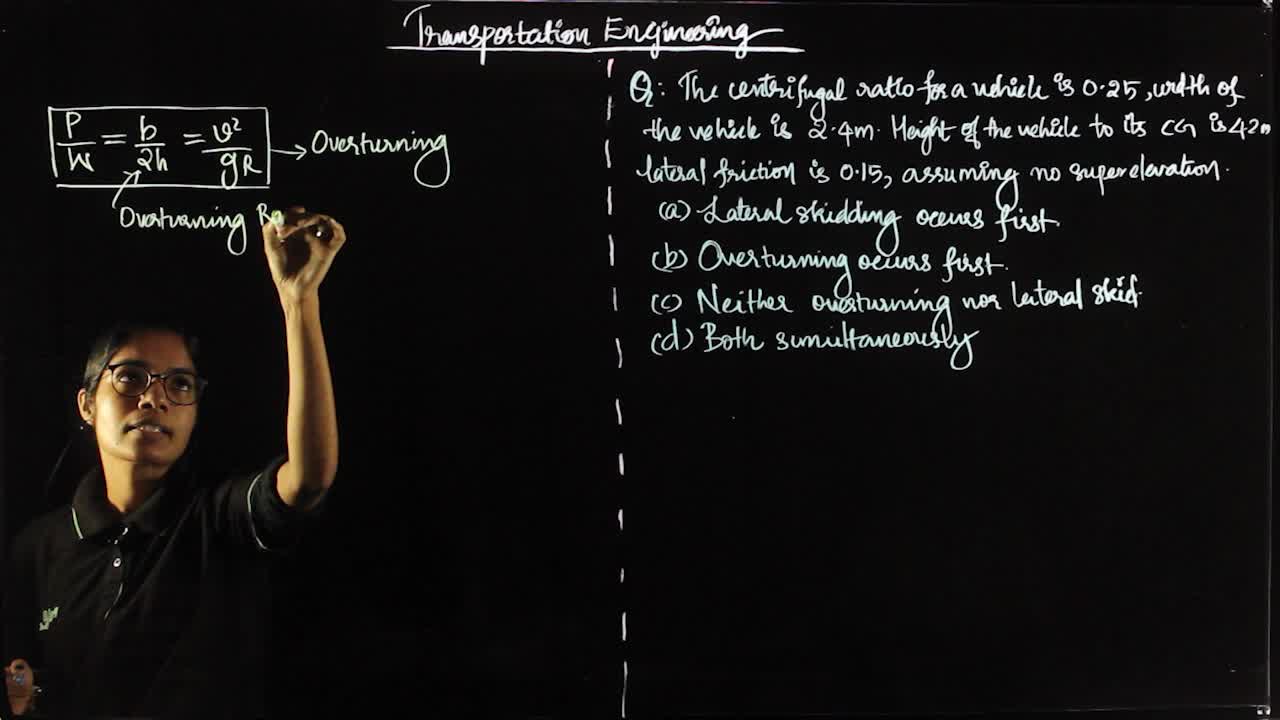 Transportation Engineering
P/W = b/2h = v²/gR → Overturning
Overturning Ra
Q: The centrifugal ratio for a vehicle is 0.25, width of
the vehicle is 2.4m. Height of the vehicle to its CG is 42m
lateral friction is 0.15, assuming no superelevation.
(a) Lateral skidding occurs first.
(b) Overturning occurs first.
(c) Neither overturning nor lateral skid.
(d) Both simultaneously